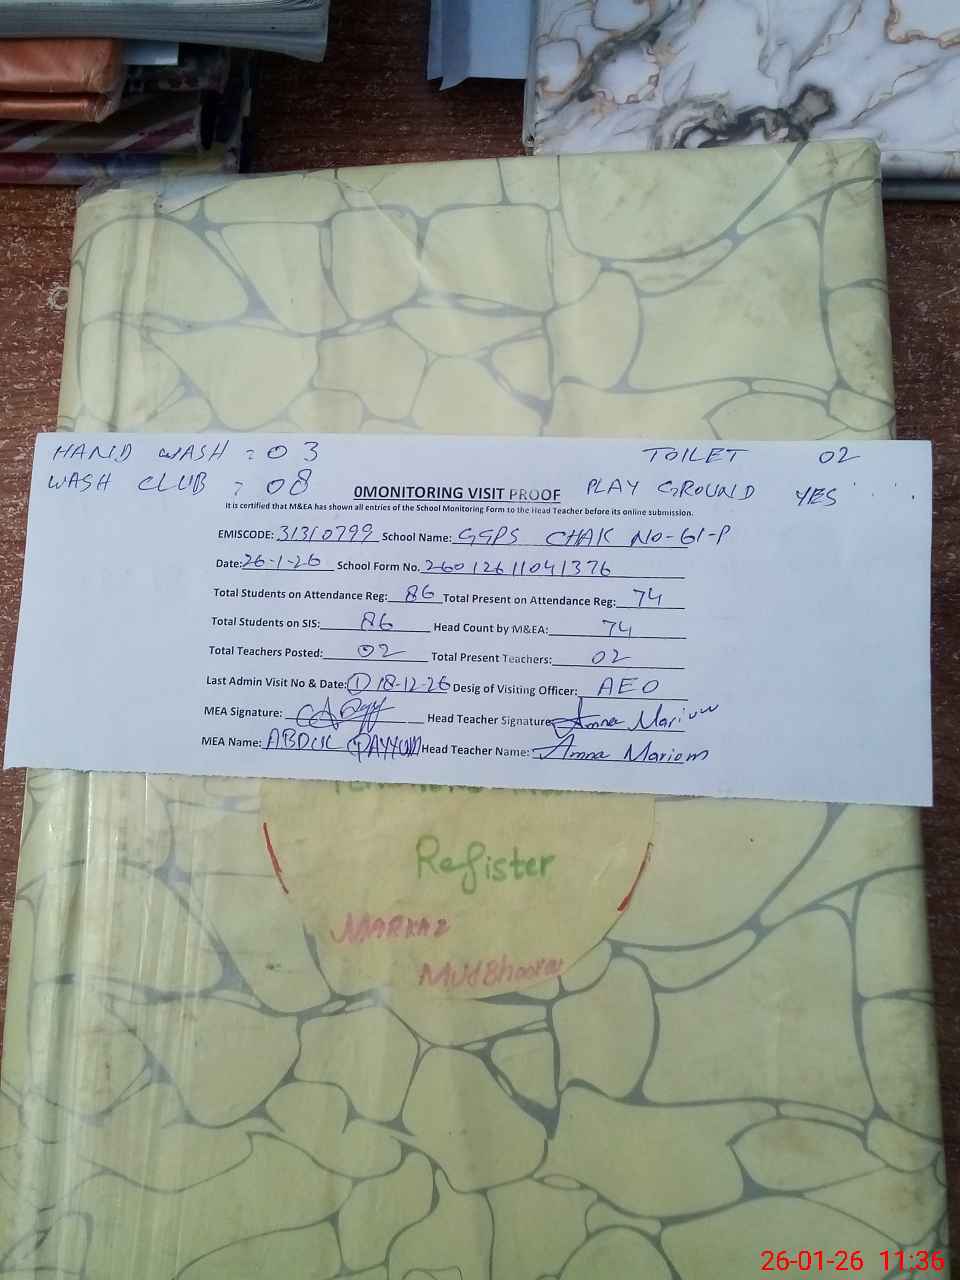 HAND WASH = 03
TOILET 02
WASH CLUB = 08
PLAY GROUND YES
0MONITORING VISIT PROOF
It is certified that M&EA has shown all entries of the School Monitoring Form to the Head Teacher before its online submission.
EMISCODE: 31310799 School Name: GGPS CHAK NO-61-P
Date: 26-1-26 School Form No. 26012611041376
Total Students on Attendance Reg: 86 Total Present on Attendance Reg: 74
Total Students on SIS: 86 Head Count by M&EA: 74
Total Teachers Posted: 02 Total Present Teachers: 02
Last Admin Visit No & Date: ① 18-12-26 Desig of Visiting Officer: AEO
MEA Signature: Head Teacher Signature Amna Mariam
MEA Name: ABDUL QAYYUM Head Teacher Name: Amna Mariam
Register
MARKAZ
26-01-26 11:36